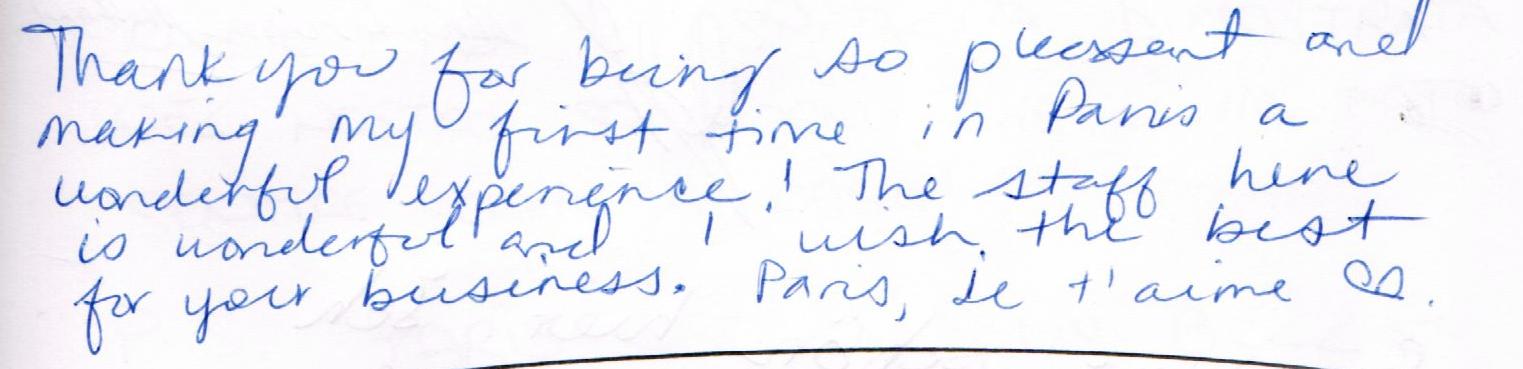 Thank you for being so pleasant and
making my first time in Paris a
wonderful experience! The staff here
is wonderful and I wish the best
for your business. Paris, Je t'aime ♡.